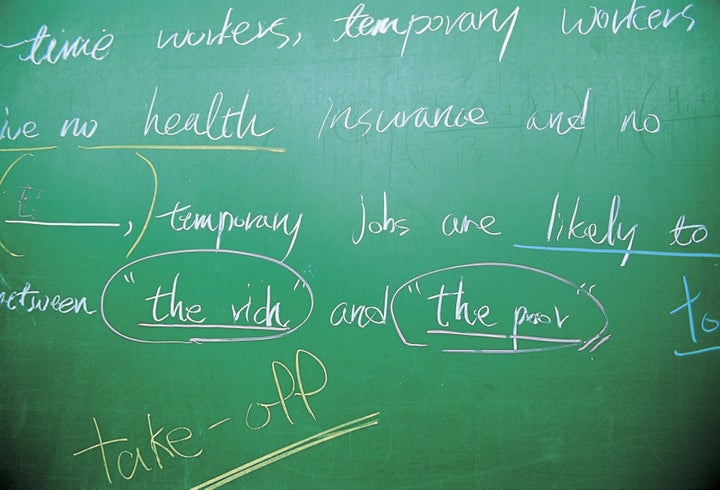 time workers, temporary workers
ive no health insurance and no
( E , ) temporary jobs are likely to
etween "the rich" and "the poor" to
take-off